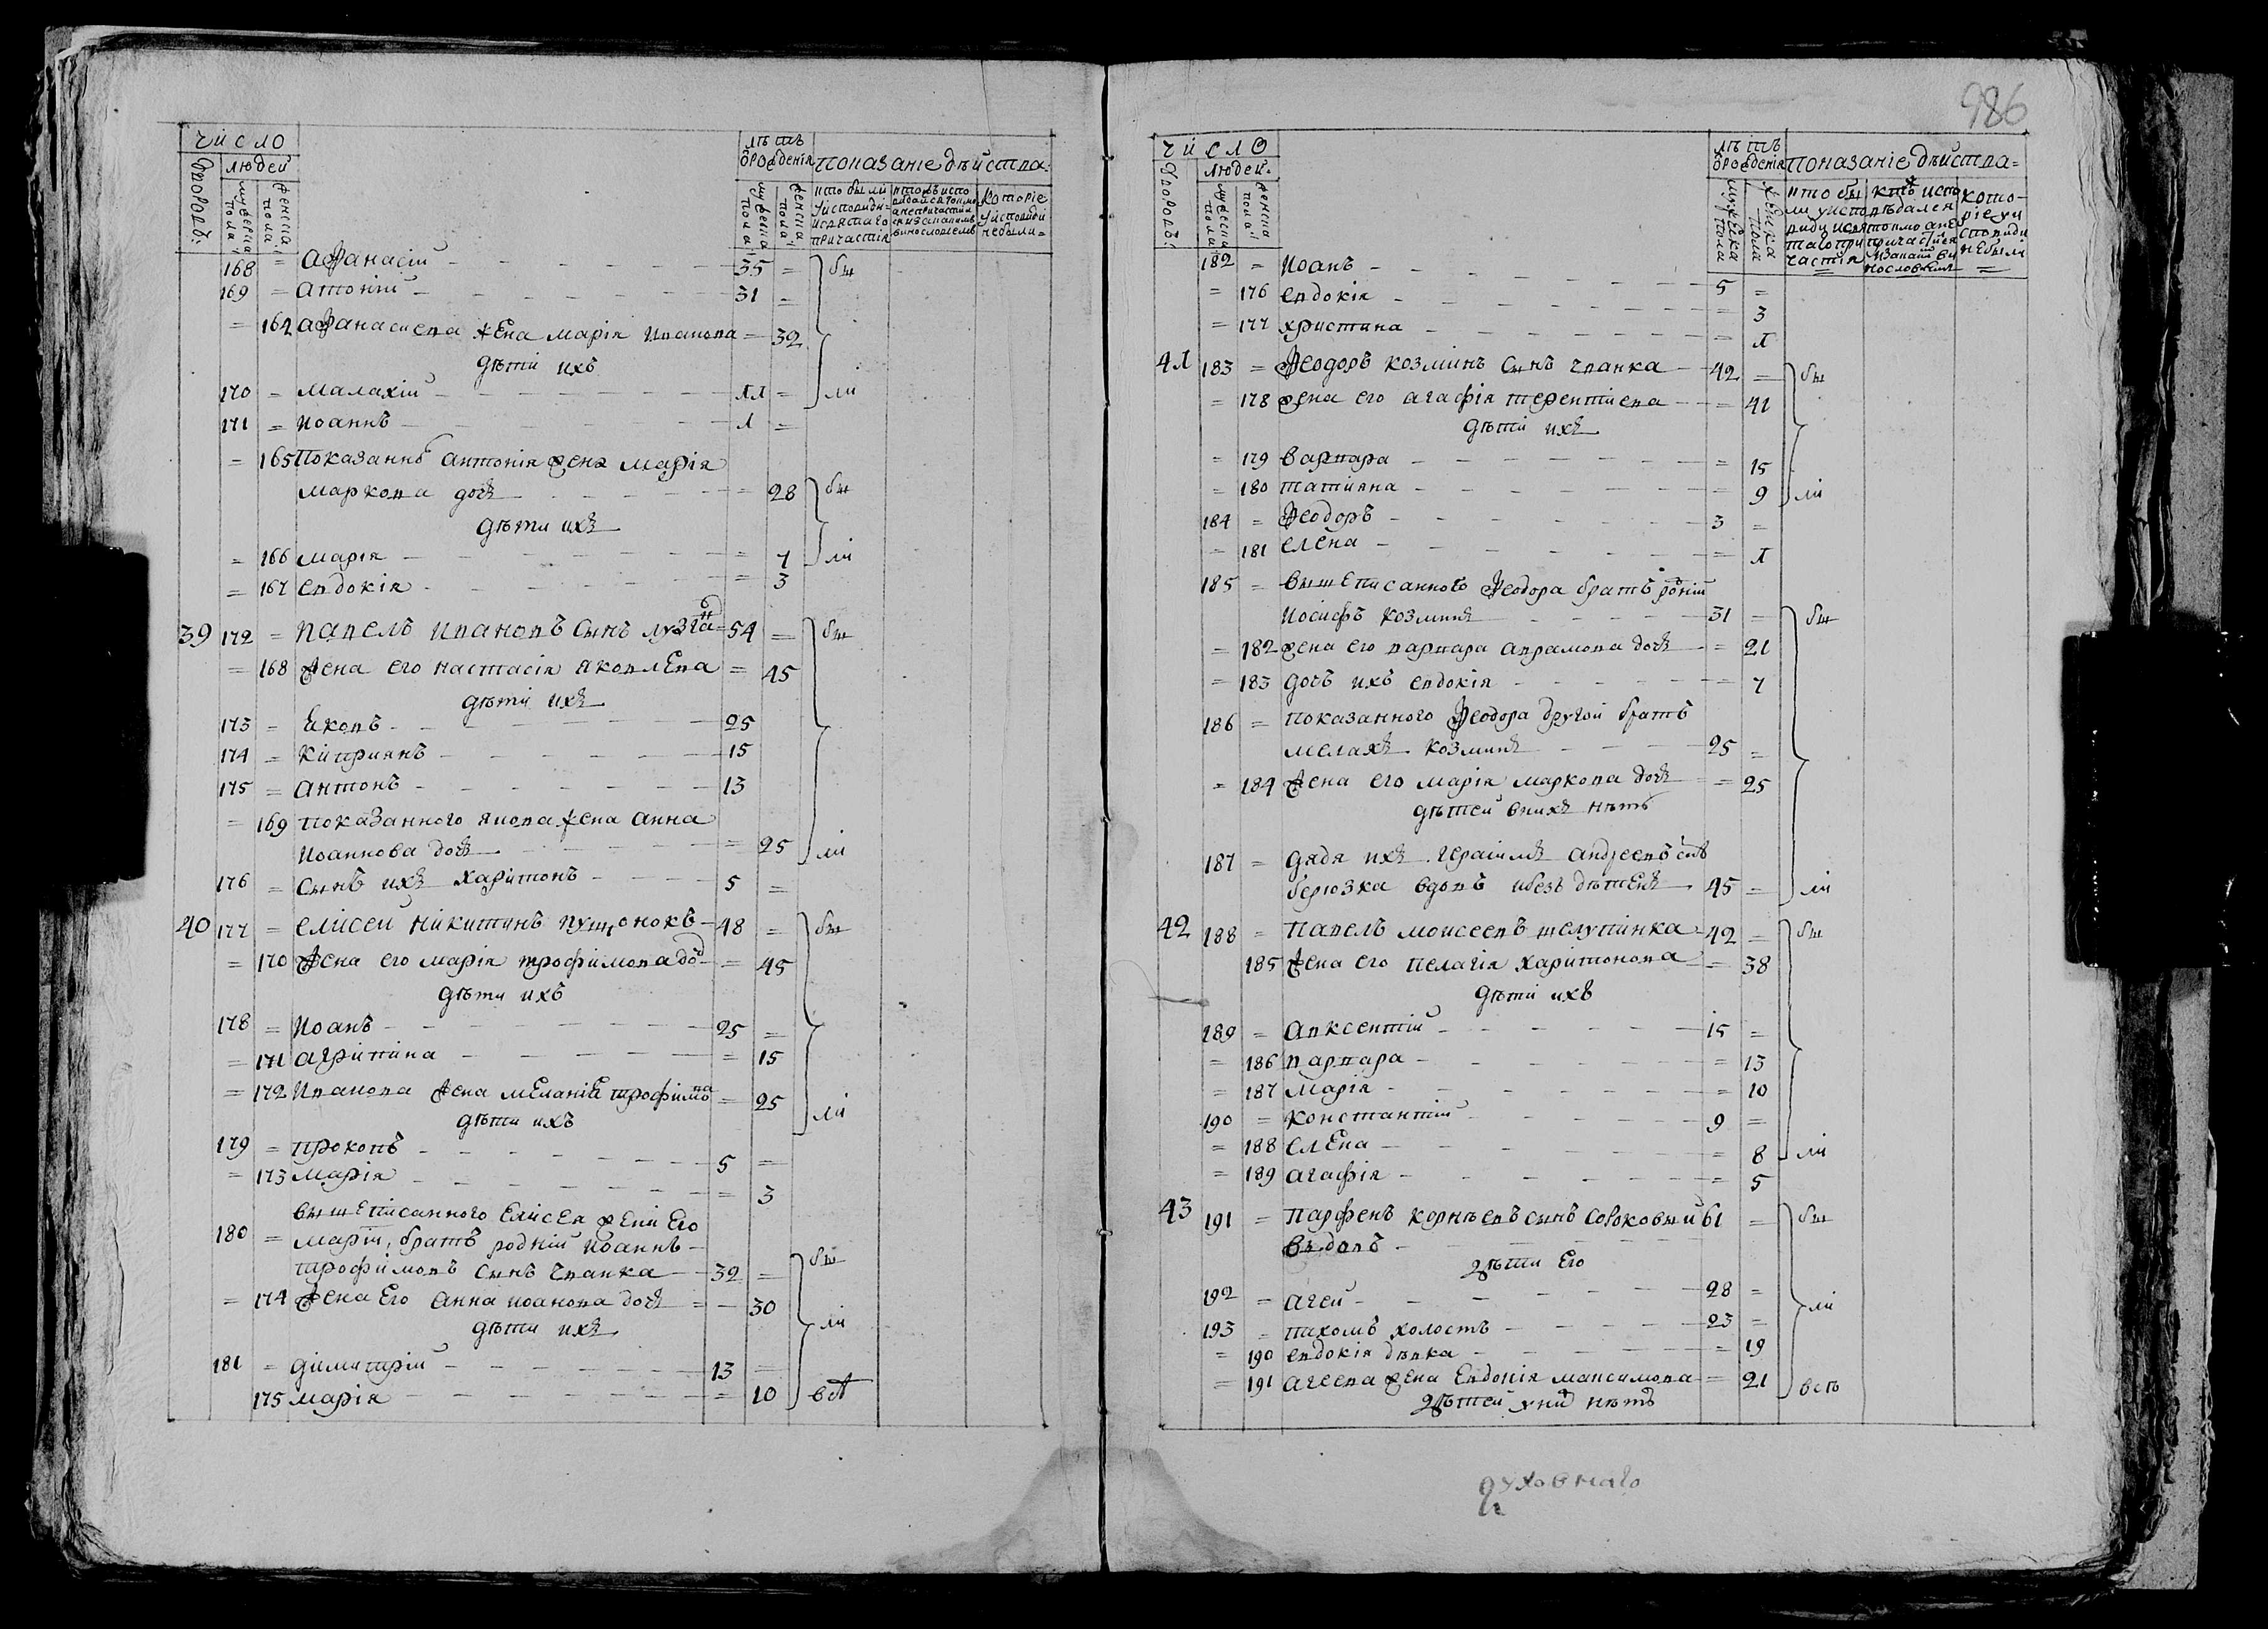 число
дворовъ.
людей
мужеска пола
женска пола
лѣтъ
ѿ рожденія
мужеска пола
женска пола
показаніе дѣйства.
кто были
у исповѣди
и святаго
причастія
которіе
у исповѣди
не были =
168 = Афанасій 35 = бы
169 = Антоній 31 =
= 164 Афанасиева жена Марія Иванова = 32
дѣти ихъ
170 = Малахій 11 = ли
171 = Иоаннъ 1 =
= 165 Показанно Антонія жена Марія
Маркова дочь = 28 бы
дѣти ихъ
= 166 Марія = 7 ли
= 167 Евдокія = 3
39 172 = Павелъ Ивановъ сынъ Лузга = 54 = бы
= 168 жена его Настасія Яковлева = 45
дѣти ихъ
173 = Яковъ 25
174 = Кипріянъ 15
175 = Антонъ 13
= 169 показанного Якова жена Анна
Иоаннова дочь = 25 ли
176 = сынъ ихъ Харитонъ 5 =
40 177 = Елисей Никитинъ Пущонокъ 48 = бы
= 170 жена его Марія Трофимова до = 45
дѣти ихъ
178 = Иоанъ 25 =
= 171 Агрипина = 15
= 172 Иванова жена Меланія Трофимова = 25 ли
дѣти ихъ
179 = Прокопъ 5 =
= 173 Марія = 3
вышеписанного Елисея жени Его
180 = Маріи, братъ родній Иоаннъ
Трофимовъ сынъ Чванка 32 = бы
= 174 жена Его Анна Иоанова дочь = 30
дѣти ихъ ли
181 = Димитрій 13 =
175 Марія = 10 всѣ
986
число
дворовъ.
людей.
мужеска пола
женска пола
лѣтъ
ѿ рожденія
мужеска пола
женска пола
показаніе дѣйства =
кто бы
ли у испо
вѣди и свя
таго при
частія
кото-
ріе у и
сповѣди
не были
182 = Иоанъ 5 =
= 176 Евдокія = 3
= 177 Христина = 1
41 183 = Феодоръ Козминъ сынъ Чванка 42 = бы
= 178 жена его Агафія Терентиева = 41
дѣти ихъ
= 179 Варвара = 15
= 180 Татияна = 9 ли
184 = Феодоръ 3 =
= 181 Елена = 1
185 = вышеписанного Феодора братъ родній
Иосифъ Козминъ 31 = бы
= 182 жена его Варвара Аврамова дочь = 21
= 183 дочь ихъ Евдокія = 7
186 = показанного Феодора другой братъ
Мелахъ Козминъ 25 =
= 184 жена его Марія Маркова дочь = 25
дѣтей в нихъ нѣтъ
187 = дядя ихъ Герасимъ Андреевъ снъ
Берюзка вдовъ и безъ дѣтенъ 45 = ли
42 188 = Павелъ Моисеевъ Шелупинка 42 = бы
185 жена его Пелагія Харитонова = 38
дѣти ихъ
189 = Авксентій 15 =
= 186 Варвара = 13
= 187 Марія = 10
190 = Константій 9 =
= 188 Елена = 8 ли
= 189 Агафія = 5
43 191 = Парфенъ Корнѣевъ сынъ Сороковый 61 = бы
вдовъ
дѣти Его
192 = Агей 28 =
193 = Пахомъ холостъ 23 = ли
= 190 Евдокія дѣвка = 19
= 191 Агеева жена Евдокія Максимова = 21 всѣ
дѣтей у нии нѣтъ
духовнаго